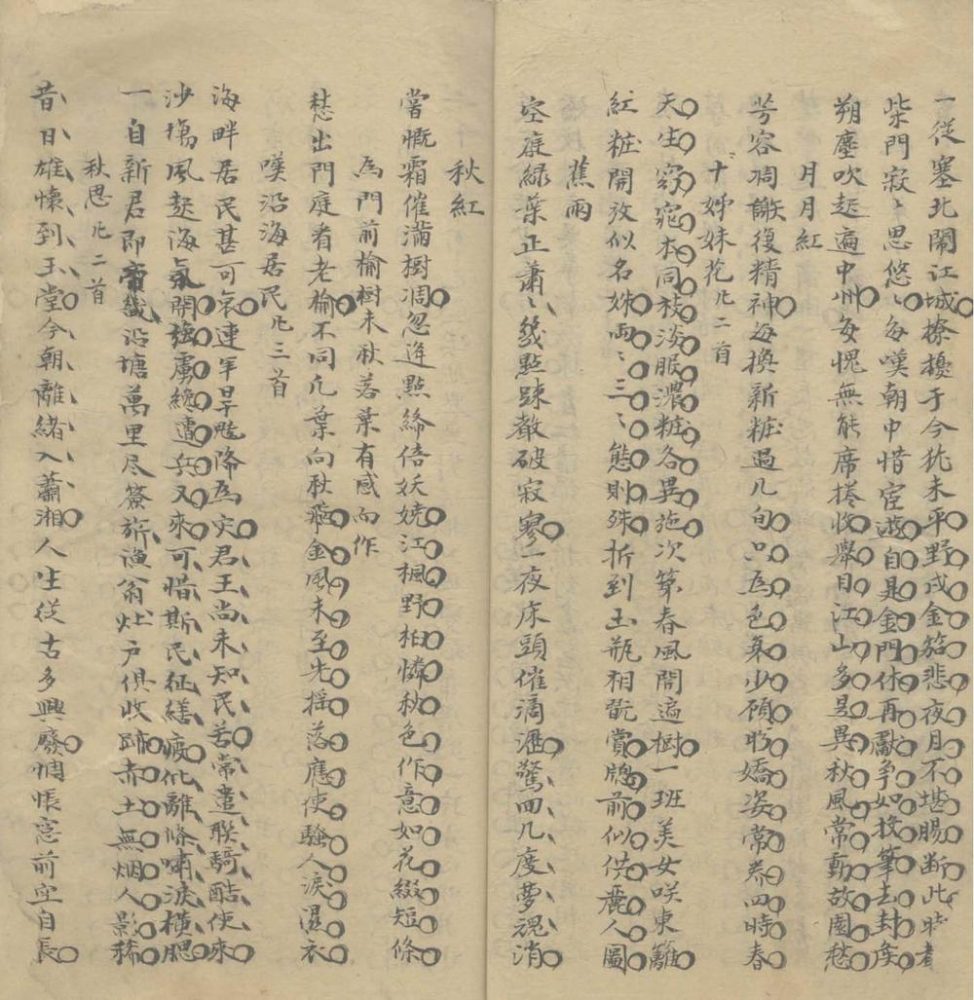 一從塞北鬧江城撩擾于今犹未平野戍金笳悲夜月不堪腸断此時
柴門寂〻思悠〻每嘆朝中惜宦遊自是金門休再獻争如投筆去封侯
朔塵吹起遍中州每愧無能席捲收舉目江山多是異秋風常動故園愁
月月紅
芳容凋謝復精神每換新粧過几旬只為色衰少顧盼嬌姿常养四時春
十姊妹花凡二首
天生窈窕本同枝淡服濃粧各異施次第春風開遍樹一班美女咲東籬
紅粧開放似名姝兩〻三〻態則殊折到玉瓶相翫賞牕前似供麗人圖
蕉雨
空庭綠葉正蕭〻幾點踈破寂寥一夜床頭催滴瀝驚回几度夢魂消
秋紅
嘗慨霜催滿樹凋忽逢點綘倍妖嬈江楓野柏憐秋色作意如花綴短條
為門前榆樹未秋落葉有感而作
愁出門庭看老榆不同凡葉向秋飛金風未至先摇落應使騷人淚濕衣
嘆沿海居民凡三首
海畔居民甚可哀連年旱魃降為灾君王尚未知民苦常遣聯騎酷使來
沙塲風起海氛開強虜纔遭兵又來可惜斯民征繕疲仳離條嘯淚橫腮
一自新君即帝畿沿塘萬里尽簽旂漁翁灶户俱收跡赤土無烟人影稀
秋思凡二首
昔日雄懷到玉堂今朝離緒入瀟湘人生從古多興廢惆悵窓前空自長